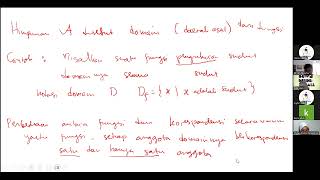 Himpunan A disebut domain (daerah asal) dari fungsi
Contoh : Misalkan suatu fungsi pengukuran sudut
domainnya secara sudut
notasi domain D Df = { x | x adalah sudut }
Perbedaan antara fungsi dan korespondensi secara umum
yaitu fungsi setiap anggota domainnya berkorespondensi
satu dan hanya satu anggota